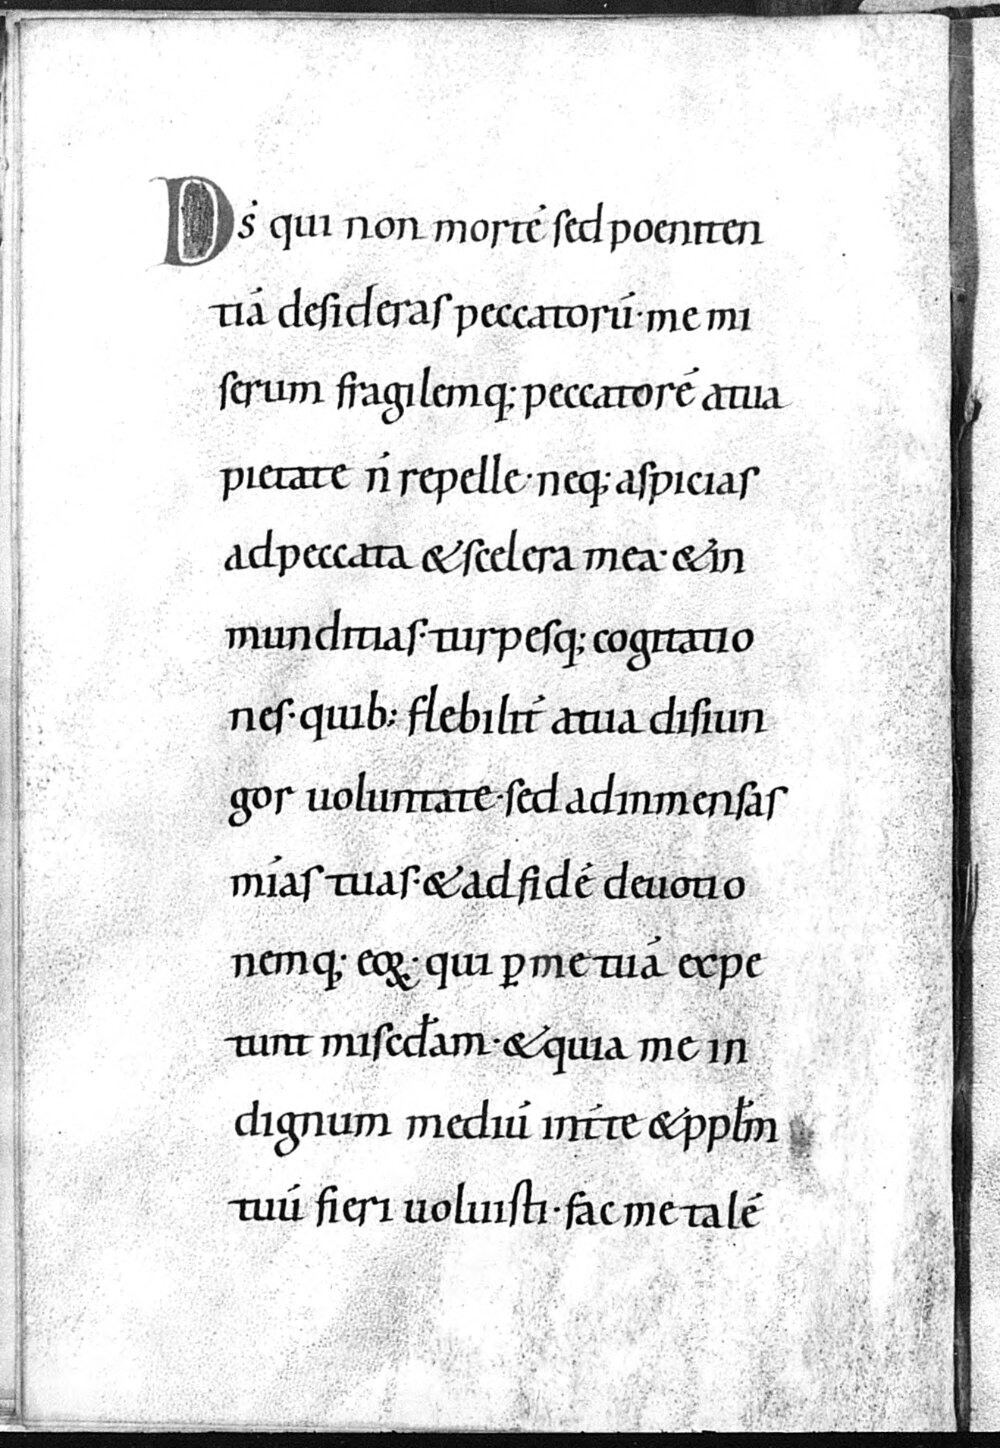 Dś qui non morté sed poeniten
tiá desideras peccatorú · me mi
serum fragilemq; peccatoré atua
pietate ń repelle · neq; aspicias
adpeccata & scelera mea · & in
munditias · turpesq; cogitatio
nes · quib: flebilit́ atua disiun
gor uoluntate · sed adinmensas
mías tuas · & ad fidé deuotio
nemq; eoꝝ · qui ꝑ me tuá expe
tunt misedꝉam · & quia me in
dignum mediú int́te & ppꝉm
tuú fieri uoluisti · fac me talé